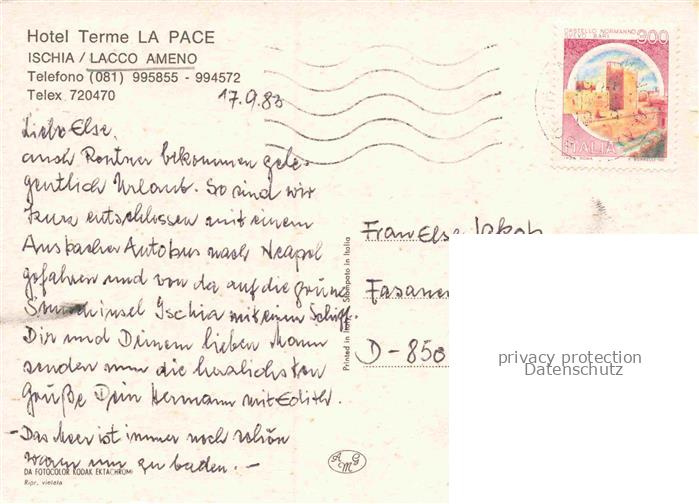 Hotel Terme LA PACE
ISCHIA / LACCO AMENO
Telefono (081) 995855 - 994572
Telex 720470
17.9.83
Liebe Else,
auch Rentner bekommen gele-
gentlich Urlaub. So sind wir
kurz entschlossen mit einem
Ansbacher Autobus nach Neapel
gefahren und von da auf die grüne
Sonneninsel Ischia mit einem Schiff.
Dir und Deinem lieben Mann
senden nun die herzlichsten
Grüße Dein Hermann mit Edith.
- Das Meer ist immer noch schön
warm um zu baden. -
DA FOTOCOLOR KODAK EKTACHROME
Ripr. vietata
Printed in Italy Stampato in Italia
AGM
CASTELLO NORMANNO
SVEVO BARI
900
ITALIA
Frau Else Jakob
Fasanen
D-850
privacy protection
Datenschutz